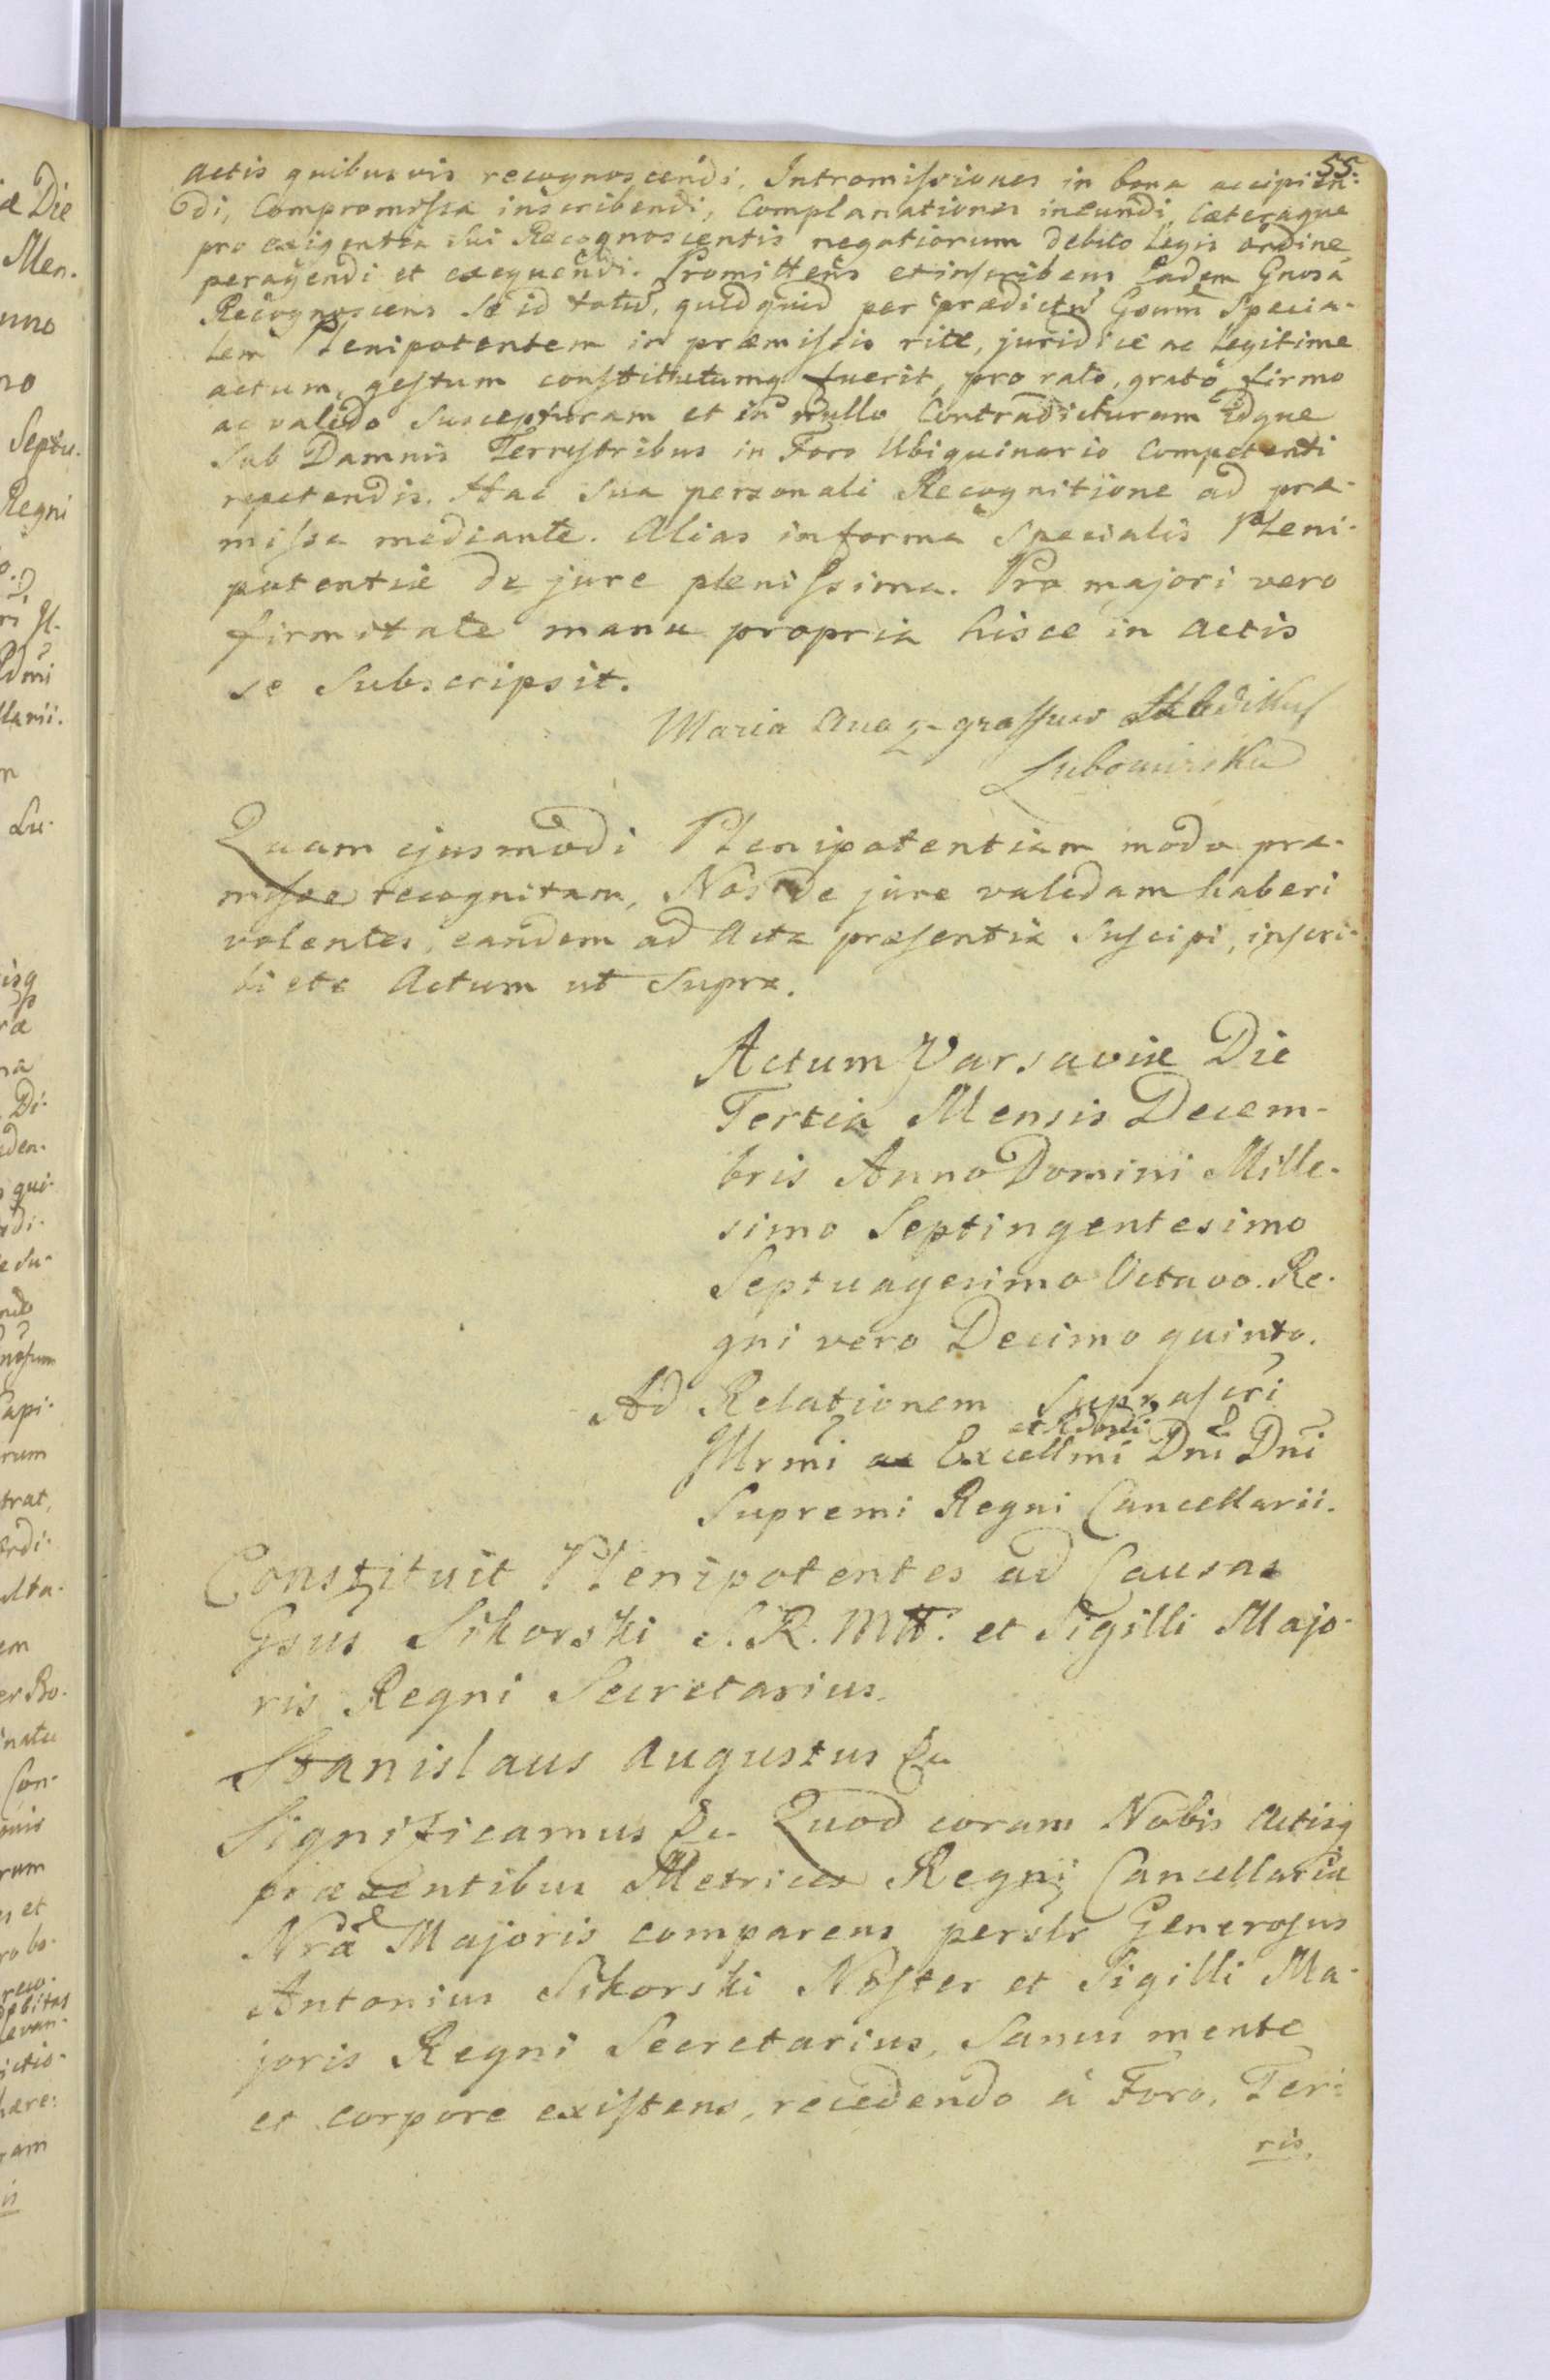 55.
actis quibusvis recognoscendi, Intromissiones in bona accipien-
di, Compromissa inscribendi, Complanationes ineundi, Cæteraque
pro exigentia sui Recognoscentis negotiorum debito Legis ordine
peragendi et exequendi. Promittens et inscribens Eadem Gnosa
Recognoscens se id totũ, quidquid per prædictũ Gsum Specia-
lem Plenipotentem in præmissis rite, juridice ac Legitime
actum, gestum constitutumq fuerit, pro rato, grato firmo
ac valido suscepturam et in nullo Contradicturam idque
Sub Damnis Terrestribus in Foro Ubiquinario Competenti
repetendis. Hac sua personali Recognitione ad præ-
missa mediante. Alias in forma Specialis Pleni-
potentiæ de jure plenissima. Pro majori vero
firmitate manu propria hisce in actis
se Subscripsit.
Maria
Lubomirska
Quam ejusmodi Plenipotentiam modo præ-
misso recognitam, Nos de jure validam haberi
volentes, eandem ad Acta præsentia Suscipi, inscri-
bi etc Actum ut supra.
Actum Varsaviæ Die
Tertia Mensis Decem-
bris Anno Domini Mille-
simo Septingentesimo
Septuagesimo Octavo. Re-
gni vero Decimo quinto.
Ad Relationem Suprascri
et Rdmi
Illrmi ac Excellmi Dni Dni
Supremi Regni Cancellarii.
Constituit Plenipotentes ad Causas
Gsus Sikorski S. R. Mtt. et Sigilli Majo-
ris Regni Secretarius.
Stanislaus Augustus &c
Significamus &c Quod coram Nobis Actisq
præsentibus Metrices Regni Cancellariæ
Nræ Majoris comparens perslr Generosus
Antonius Sikorski Noster et Sigilli Ma-
joris Regni Secretarius, Sanus mente
et corpore existens, recedendo à Foro, Ter-
ris